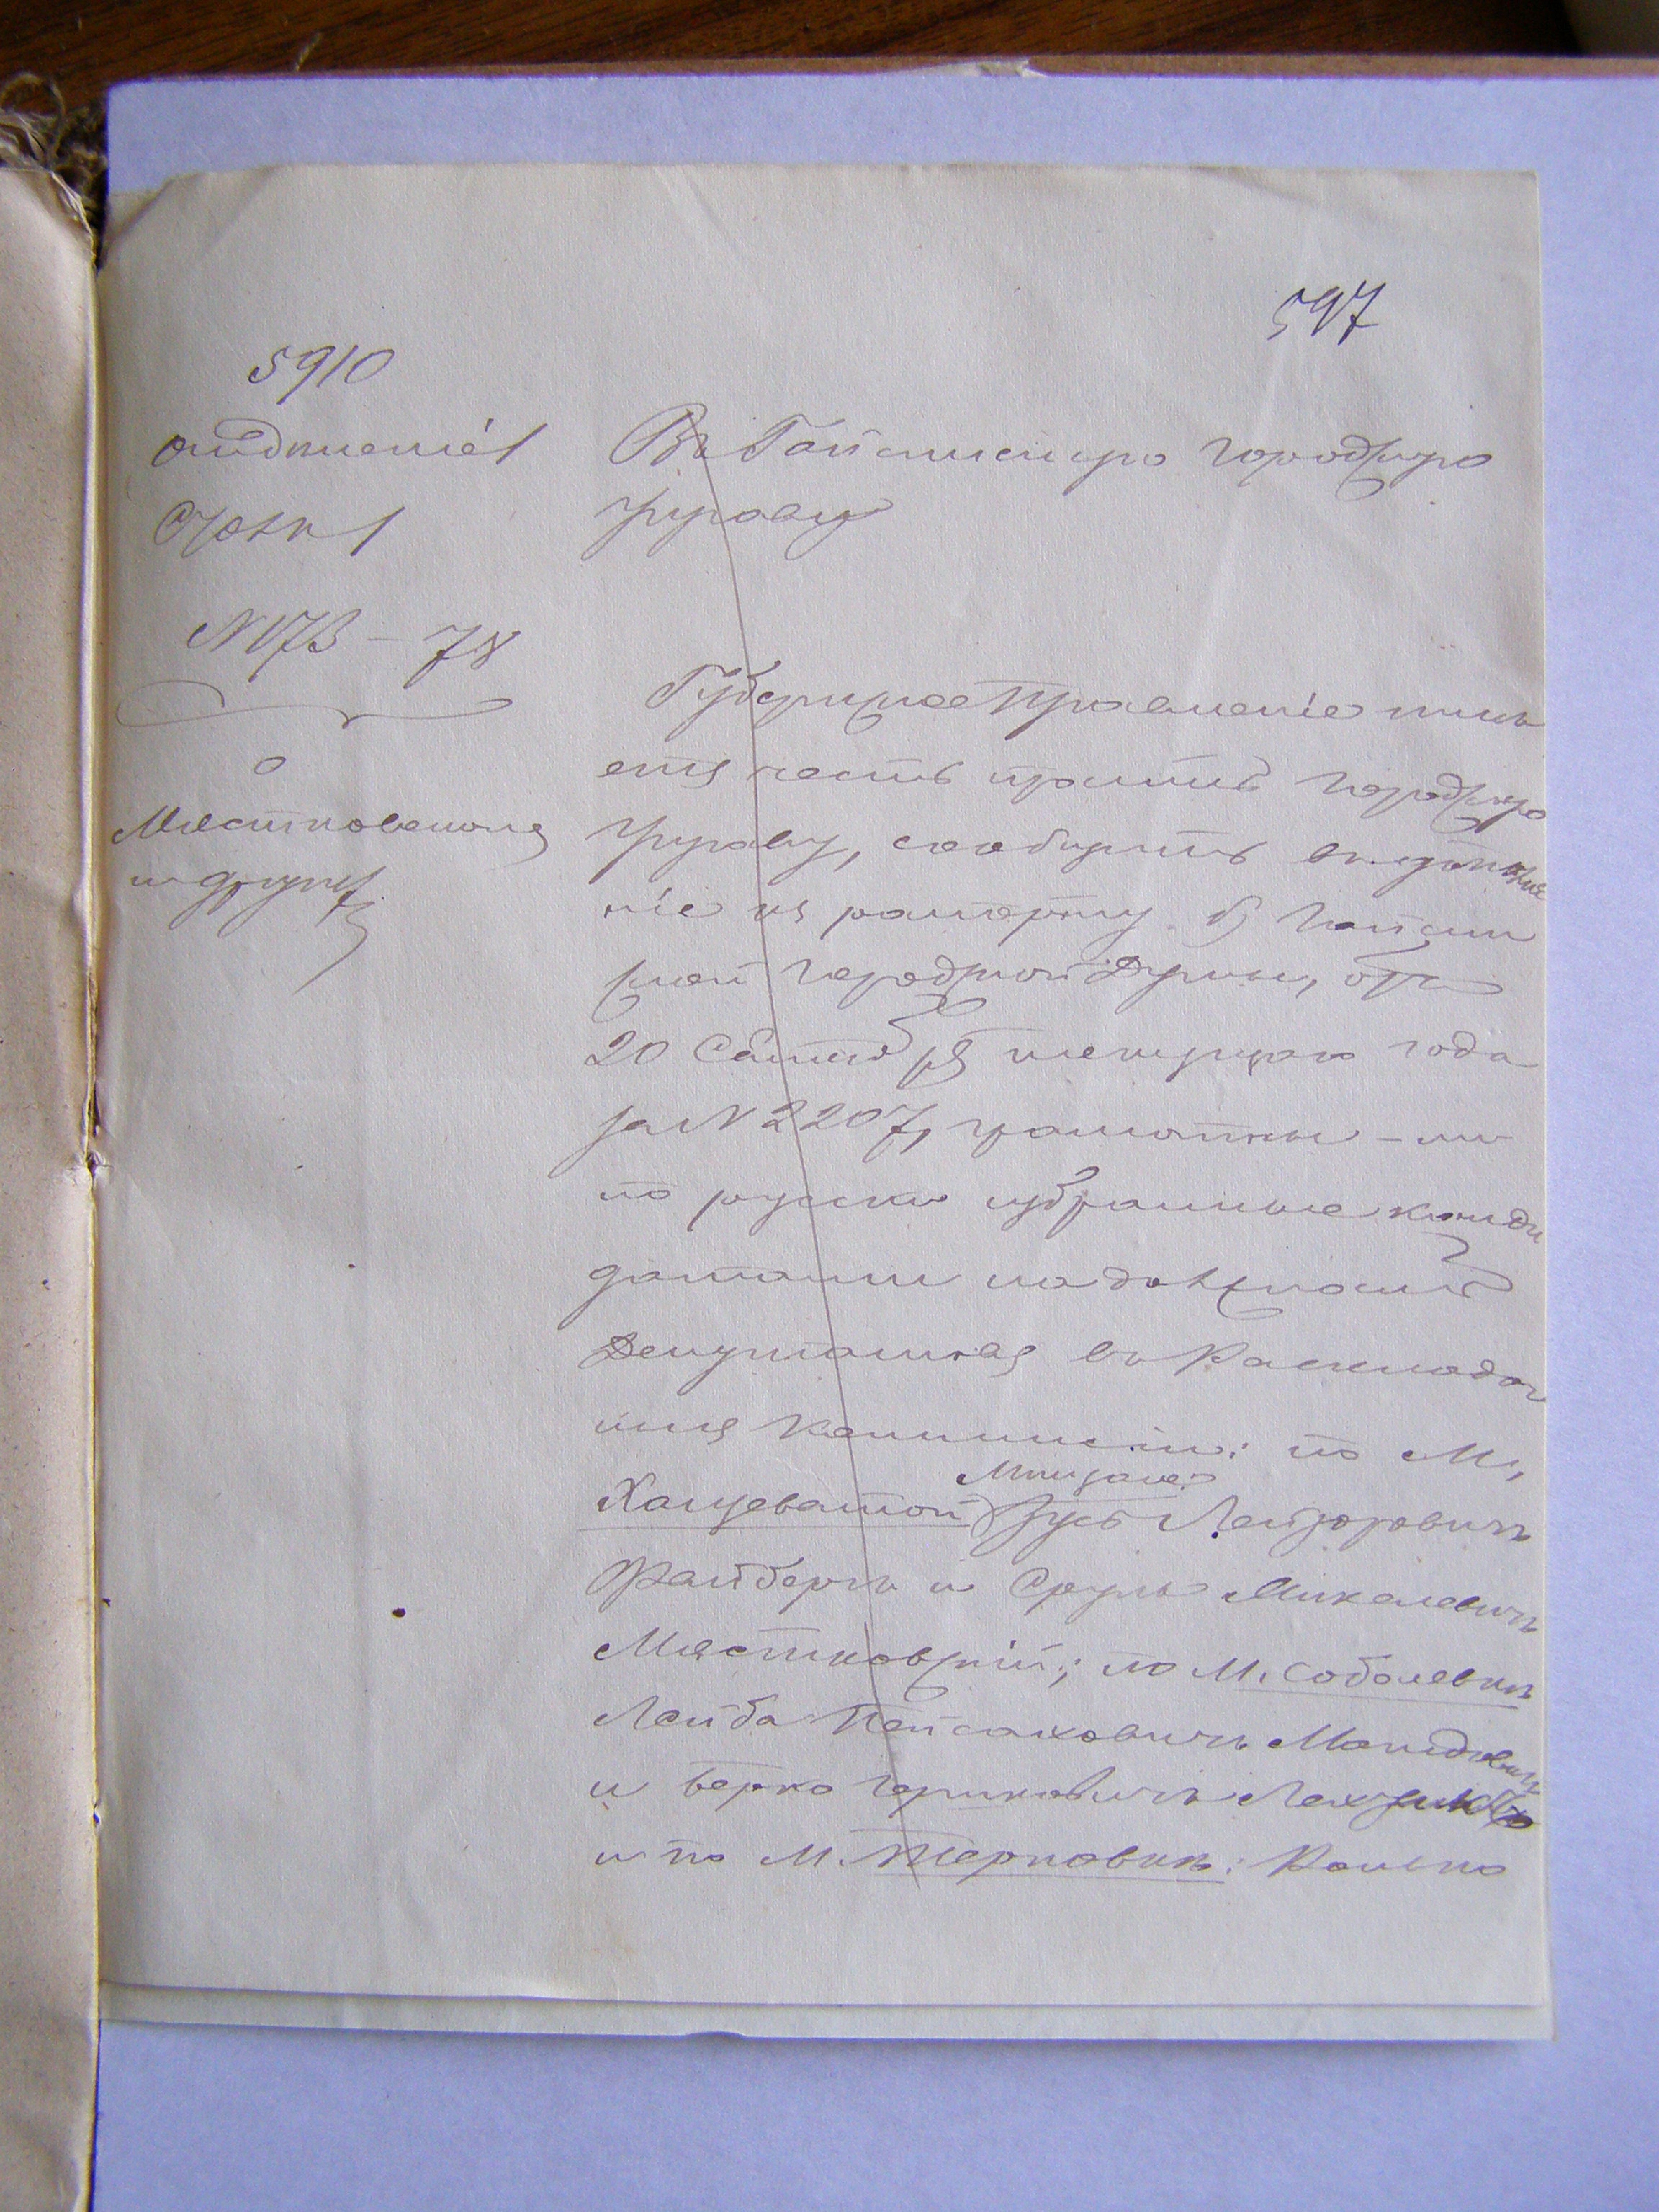 597
5910
отдѣленіе 1
Столъ 1
№ 173 – 78
о
Мястковскомъ
и других
Въ Гайсинскую Городскую
Управу
Губернское Правленіе имѣ
етъ честь просить Городскую
Управу, сообщить въ дополне
ніе къ рапорту б. Гайсин
ской Городской Думы, отъ
20 Сентября текущего года
за № 2207, грамотны – ли
по русски избранные канди
датами на должность
Депутатовъ въ Раскладоч
ныя Комиссіи: по М.
Хащеватой Зусь Лейзоровичъ
Файбергъ и Сруль Михелевичъ
Мястковскій; по М. Соболевкѣ
Лейба Пейсаховичъ
и Берко Гершковичъ
и по М. Терновкѣ: